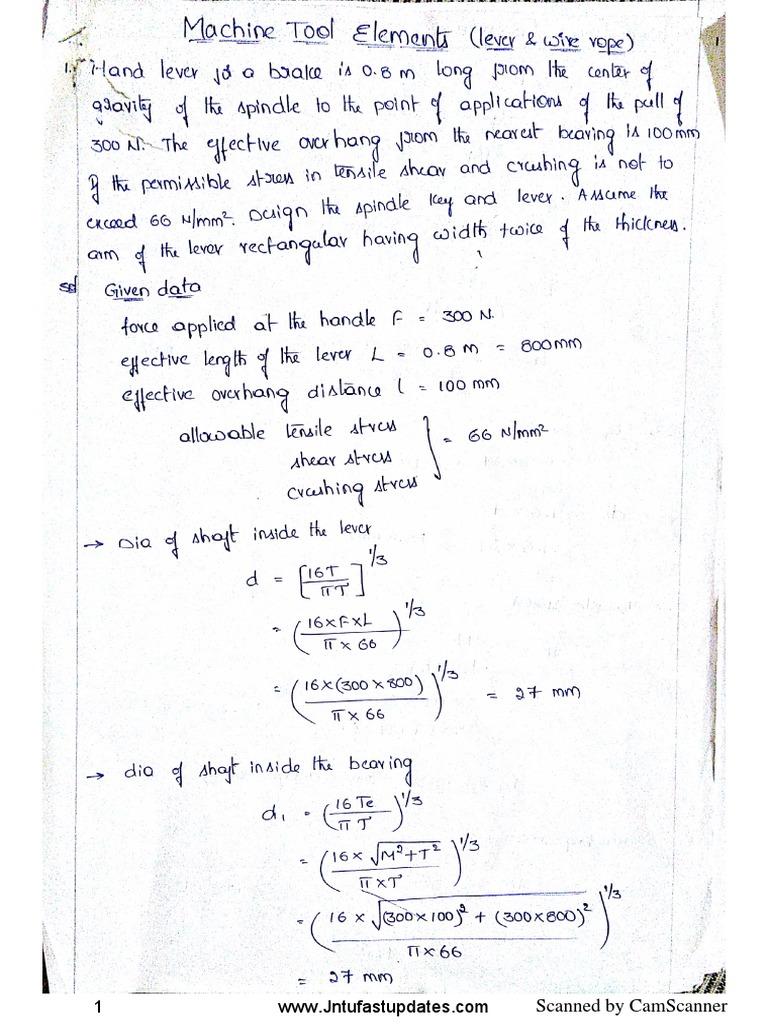 Machine Tool Elements (lever & wire rope)
1
1. Hand lever for a brake is 0.8 m long from the center of
gravity of the spindle to the point of applications of the pull of
300 N. The effective overhang from the nearest bearing is 100 mm
If the permissible stress in tensile shear and crushing is not to
exceed 66 N/mm². Design the spindle key and lever. Assume the
arm of the lever rectangular having width twice of the thickness.
sol Given data
force applied at the handle F = 300 N.
effective length of the lever L = 0.8 m = 800 mm
effective overhang distance l = 100 mm
allowable tensile stress
shear stress } = 66 N/mm²
crushing stress
→ Dia of shaft inside the lever
d = [16T / πτ]^1/3
= (16×F×L / π×66)^1/3
= (16×(300×800) / π×66)^1/3 = 27 mm
→ dia of shaft inside the bearing
d₁ = (16Te / πτ)^1/3
= (16×√M²+T² / π×τ)^1/3
= (16×√(300×100)²+(300×800)² / π×66)^1/3
= 27 mm
1 www.Jntufastupdates.com Scanned by CamScanner